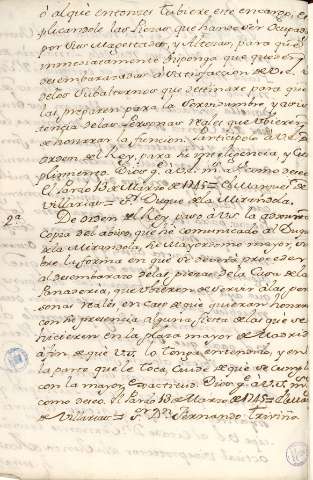 ô al que entonces tubiere este encargo, ex
plicandole las Piezas que han de ser Ocupadas
por Sus Magestades, y Altezas, para que
inmediatamente disponga que queden
desembarazadas a satisfaccion de V.E. y
de los Subalternos que destinare para que
las preparen para la Servidumbre, y asis
tencia de las Personas Reales que ubieren
de honrrar la funcion; anticipolo a V.E. de
orden del Rey, para su inteligencia, y Cum
plimiento. Dios g. a V.E. m. a. como deseo
El Pardo 13 de Marzo de 1745 = El Marques de
Villarias = S.r Duque de la Mirandola
9a De orden del Rey paso a V.S. la adjunta
Copia del abiso, que he comunicado al Duque
de la Mirandola, su Mayordomo mayor, so
bre la forma en que se deverá proceder
al desembarazo de las piezas de la Casa de la
Panaderia, que ubieren de servir a las per
sonas reales en caso de que quieran honrrar
con su presencia alguna fiesta de las que se
hicieren en la plaza mayor de Madrid
a fin de que V.S. lo tenga entendido, y en
la parte que le toca, Cuide de que se cumpla
con la mayor exactitud. Dios g. a V.S. m. a.
como deseo. El Pardo 13 de Marzo de 1745 = El Marq.
de Villarias = S.r D.n Fernando Triviño